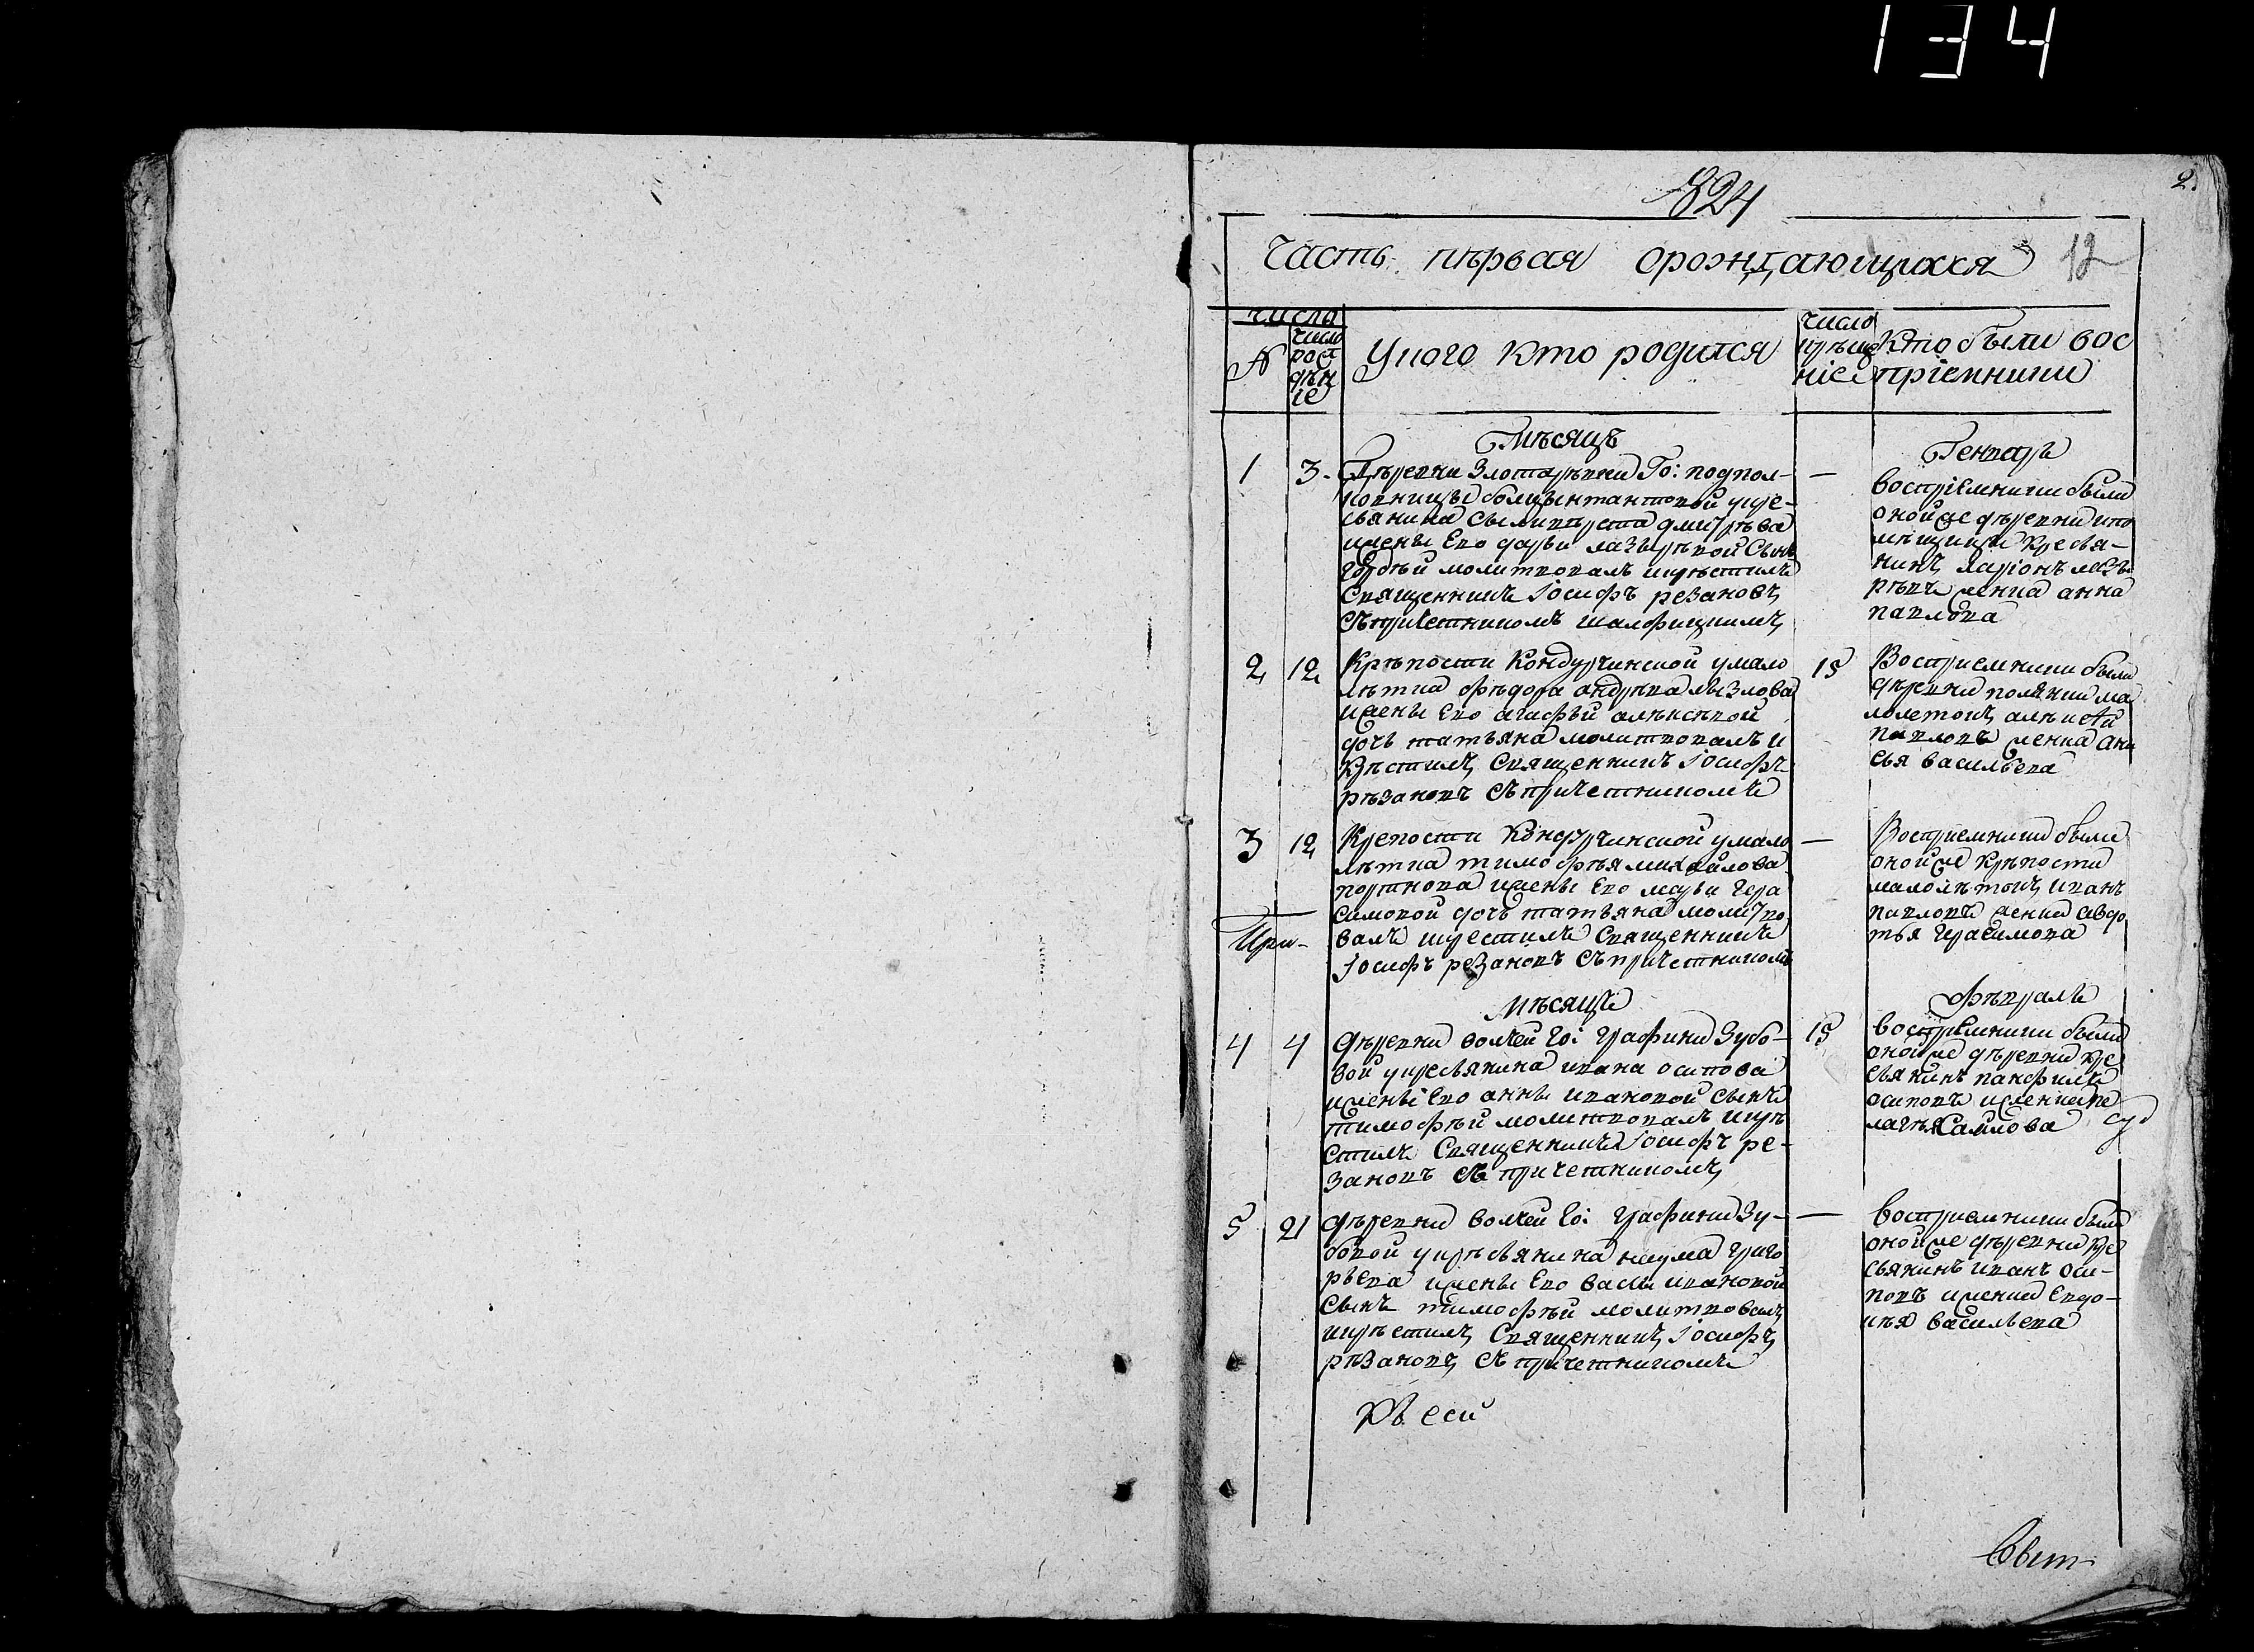 134
2.
824
Часть пѣрвая орождающихся
12
числа
№
число рождѣніе
Укого кто родился
число крѣщеніе
Кто были восприемники
Мѣсяцъ
Генварь
1
3.
Дѣревни Го: подпол-
ковницы укре-
сьянина
жены Его дарьи лазаревой Сынъ
молитвовалъ икрѣстилъ
Священникъ Іосифъ резановъ
Съпричетникомъ
—
Восприемники были
оной же дѣревни ипо
мѣщицы кресья-
нинъ ларіонъ лазо
ревъ женка анна
павлова
2
12
Крѣпости Кондурчинской умало
лѣтка Фѣдора андрѣева
жены Его агафьи алѣксѣвой
дочь татьяна молитвовалъ и
крѣстилъ Священникъ Іосифъ
рѣзановъ Съпричетникомъ
15
Восприемники были
дѣревни полянки ма
лолетокъ алѣксѣй
павловъ женка ани
сья васильева
3
12
Крепости Кондурчинской умало
лѣтка тимофѣя михайлова
портнова жены Его марьи Гера
симовой дочь татьяна молитво
валъ икрестилъ Священникъ
Іосифъ резановъ Съпричетникомъ
—
Восприемники были
оной же крѣпости
малолѣтокъ иванъ
павловъ женка авдо
тья Герасимова
Мѣсяцъ
Фѣвраль
4
4
дѣревни волчей Го: Графини Зубо-
вой укресьянина ивана осипова
жены Его анны ивановой Сынъ
тимофѣй молитвовалъ икрѣ
стилъ Священникъ Іосифъ ре-
зановъ Съ причетникомъ
15
восприемники были
оной же дѣревни кре
сьянинъ панфилъ
осиповъ иженка пе
лагѣя
5
21
дѣревни волчей Го: Графини Зу-
бовой укрѣсьянина наума Григо
рьева жены Его васы ивановой
Сынъ тимофѣй молитвовалъ
икрѣстилъ Священникъ Іосифъ
рѣзановъ Съ причетникомъ
—
Восприемники были
оной же дѣревни кре
сьянинъ иванъ оси-
повъ иженка Евдо-
кѣя васильева